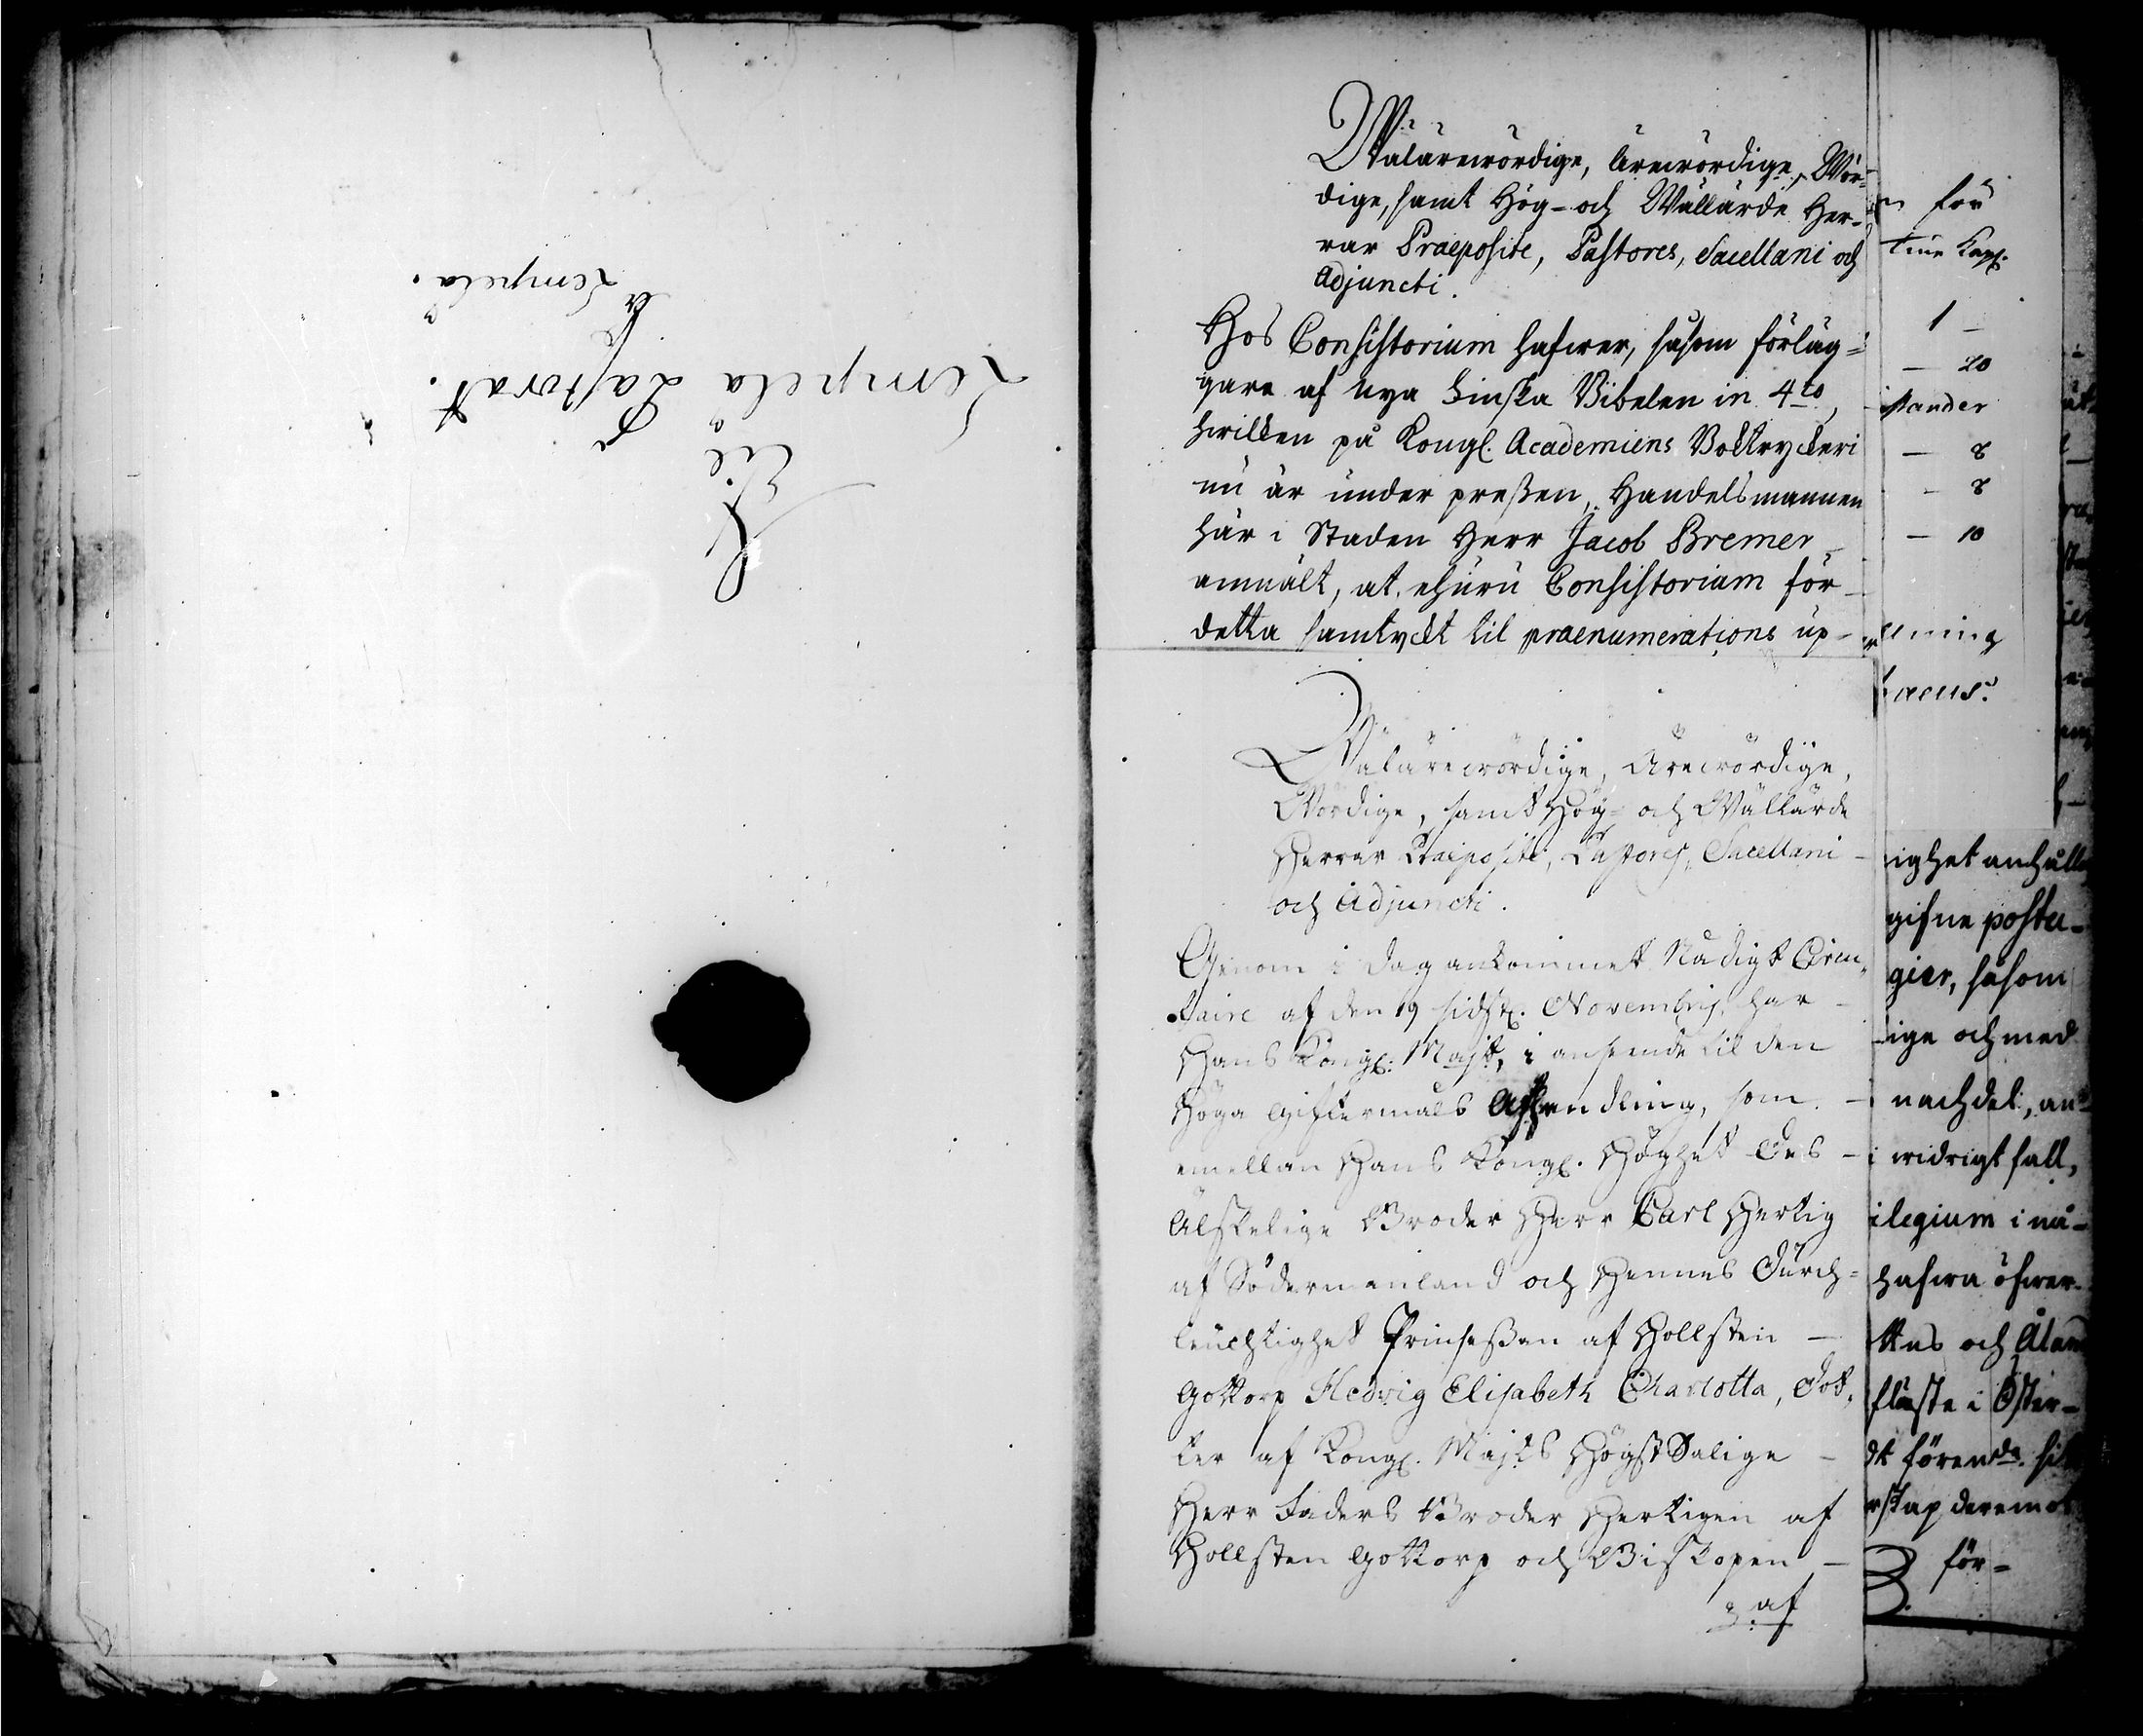 Til
Lempelä Pastorat.
Lempelä.
Wälärewördige, Ärewördige, Wör-
dige, samt Hög- och Wällärde Her-
rar Praeposite, Pastores, Sacellani och
Adjuncti.
Hos Consistorium hafwer, såsom förläg-
gare af nya Finska Bibelen in 4to,
hwilken på Kongl. Academiens Boktryckeri
nu är under preßen, Handelsmannen
här i Staden Herr Jacob Bremer
anmält, at ehuru Consistorium för
detta samtyckt til praenumerations up-
Wälärewördige, Ärewördige,
Wördige, samt Hög- och Wällärde
Herrar Praeposite, Pastores, Sacellani
och Adjuncti.
Genom i dag ankommet Nådigt Circu-
laire af den 19 sidstl. Novembris, har
Hans Kongl. Majt, i anseende til den
Höga Giftermåls Afhandling, som
emellan Hans Kongl. Höghet Des
Älskelige Broder Herr Carl Hertig
af Södermanland och Hennes Durch-
leuchtighet Prinseßan af Hollsten
Gottorp Hedvig Elisabeth Charlotta, Dot-
ter af Kongl. Majts HögstSalige
Herr Faders Broder Hertigen af
Hollsten Gottorp och Biskopen
af
för
1 -
- 20
- 8
- 8
- 10
ighet anhålle
gifne postu-
gier, såsom
ige och med
nachdel, an-
i widrigt fall,
ilegium i nå-
hafwa öfwer-
ttes och Åland
fleste i Öster-
förende
skap deremot
för-